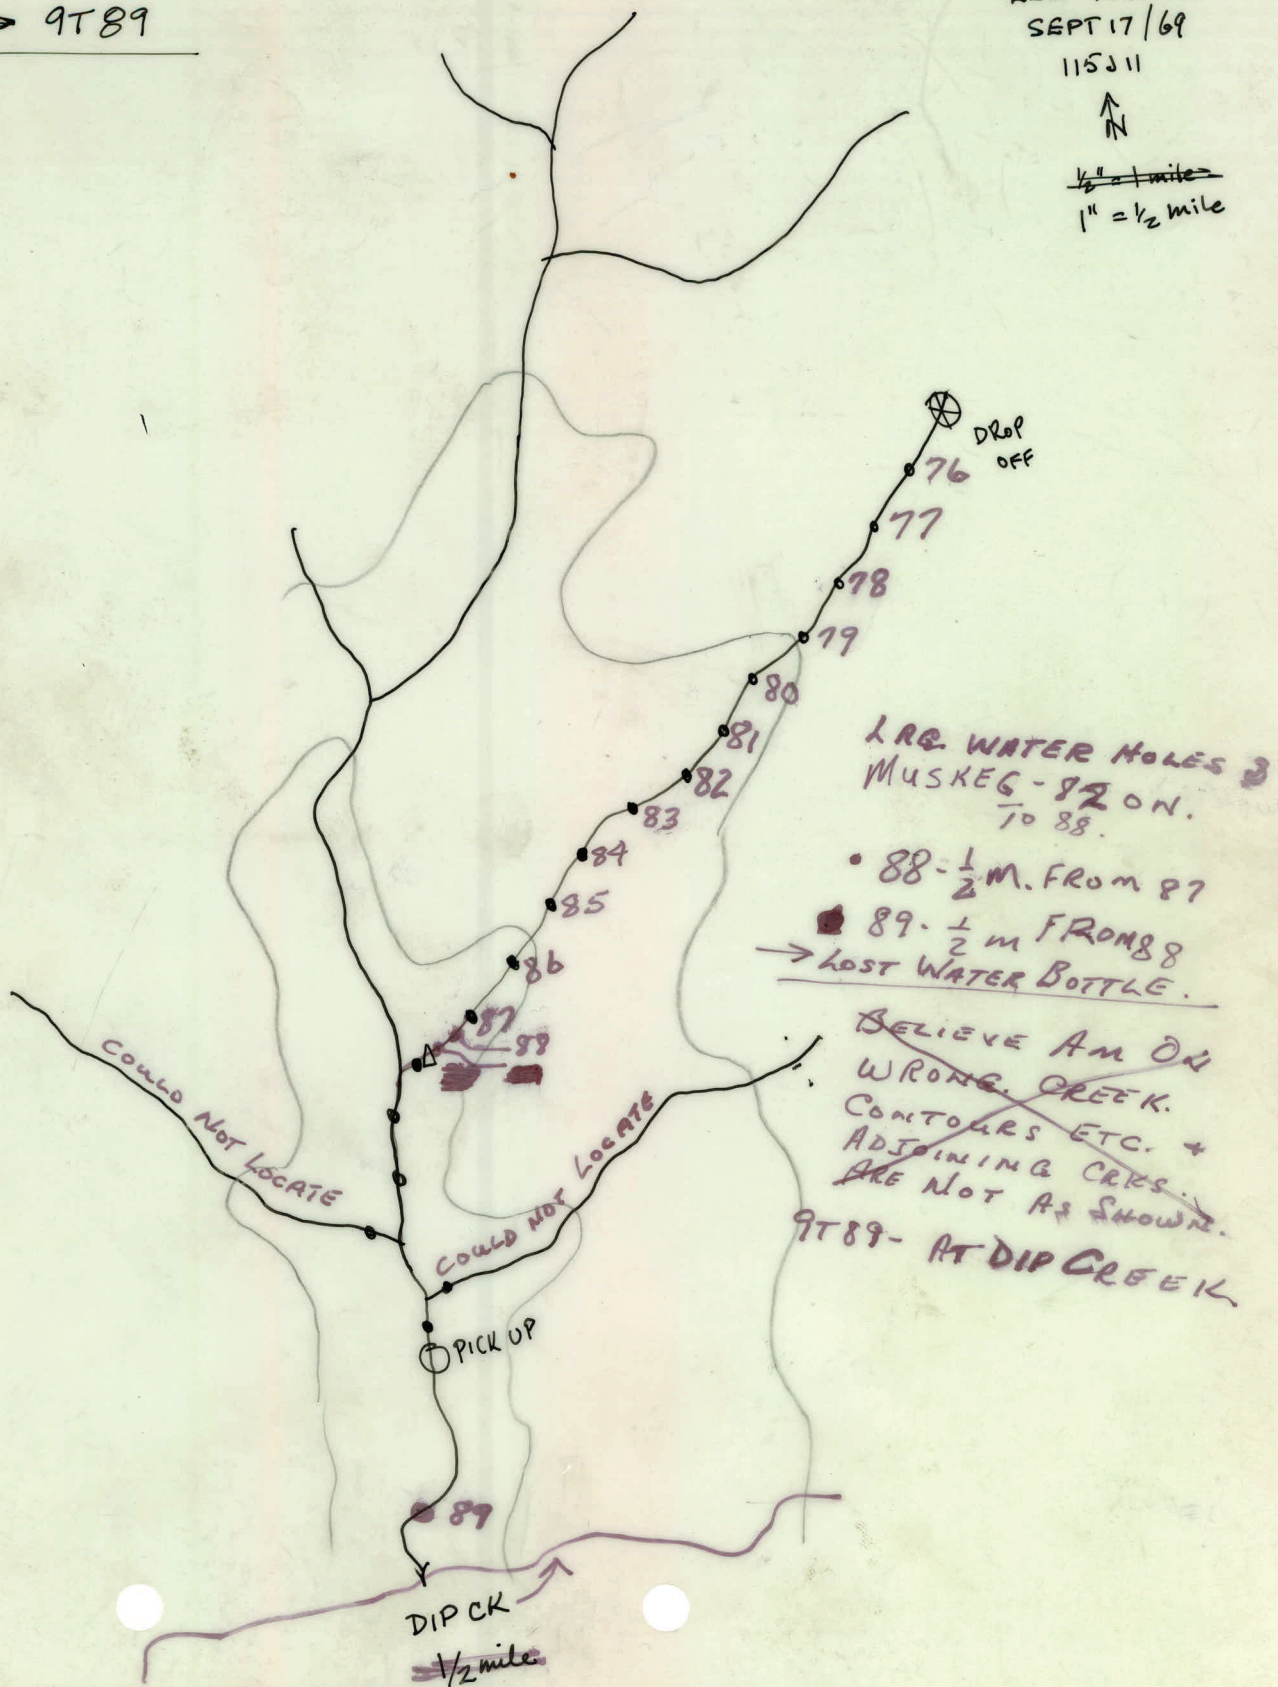 → 9T89
SEPT 17/69
115J11
N
1/2" = 1 mile
1" = 1/2 mile
DROP
OFF
76
77
78
79
80
81
82
83
84
85
86
87
88
LRG. WATER HOLES &
MUSKEG - 82 ON.
TO 88.
• 88 - 1/2 M. FROM 87
89 - 1/2 m FROM 88
→ LOST WATER BOTTLE.
BELIEVE AM ON
WRONG CREEK.
CONTOURS ETC. +
ADJOINING CRKS.
ARE NOT AS SHOWN.
9T89 - AT DIP CREEK
COULD NOT LOCATE
COULD NOT LOCATE
PICK UP
89
DIP CK
1/2 mile